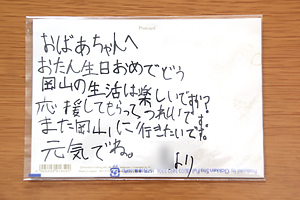 Postcard
おばあちゃんへ
おたん生日おめでどう
岡山の生活は楽しいですか?
応援してもらってうれしいです。
また岡山に行きたいです。
元気でね。
より